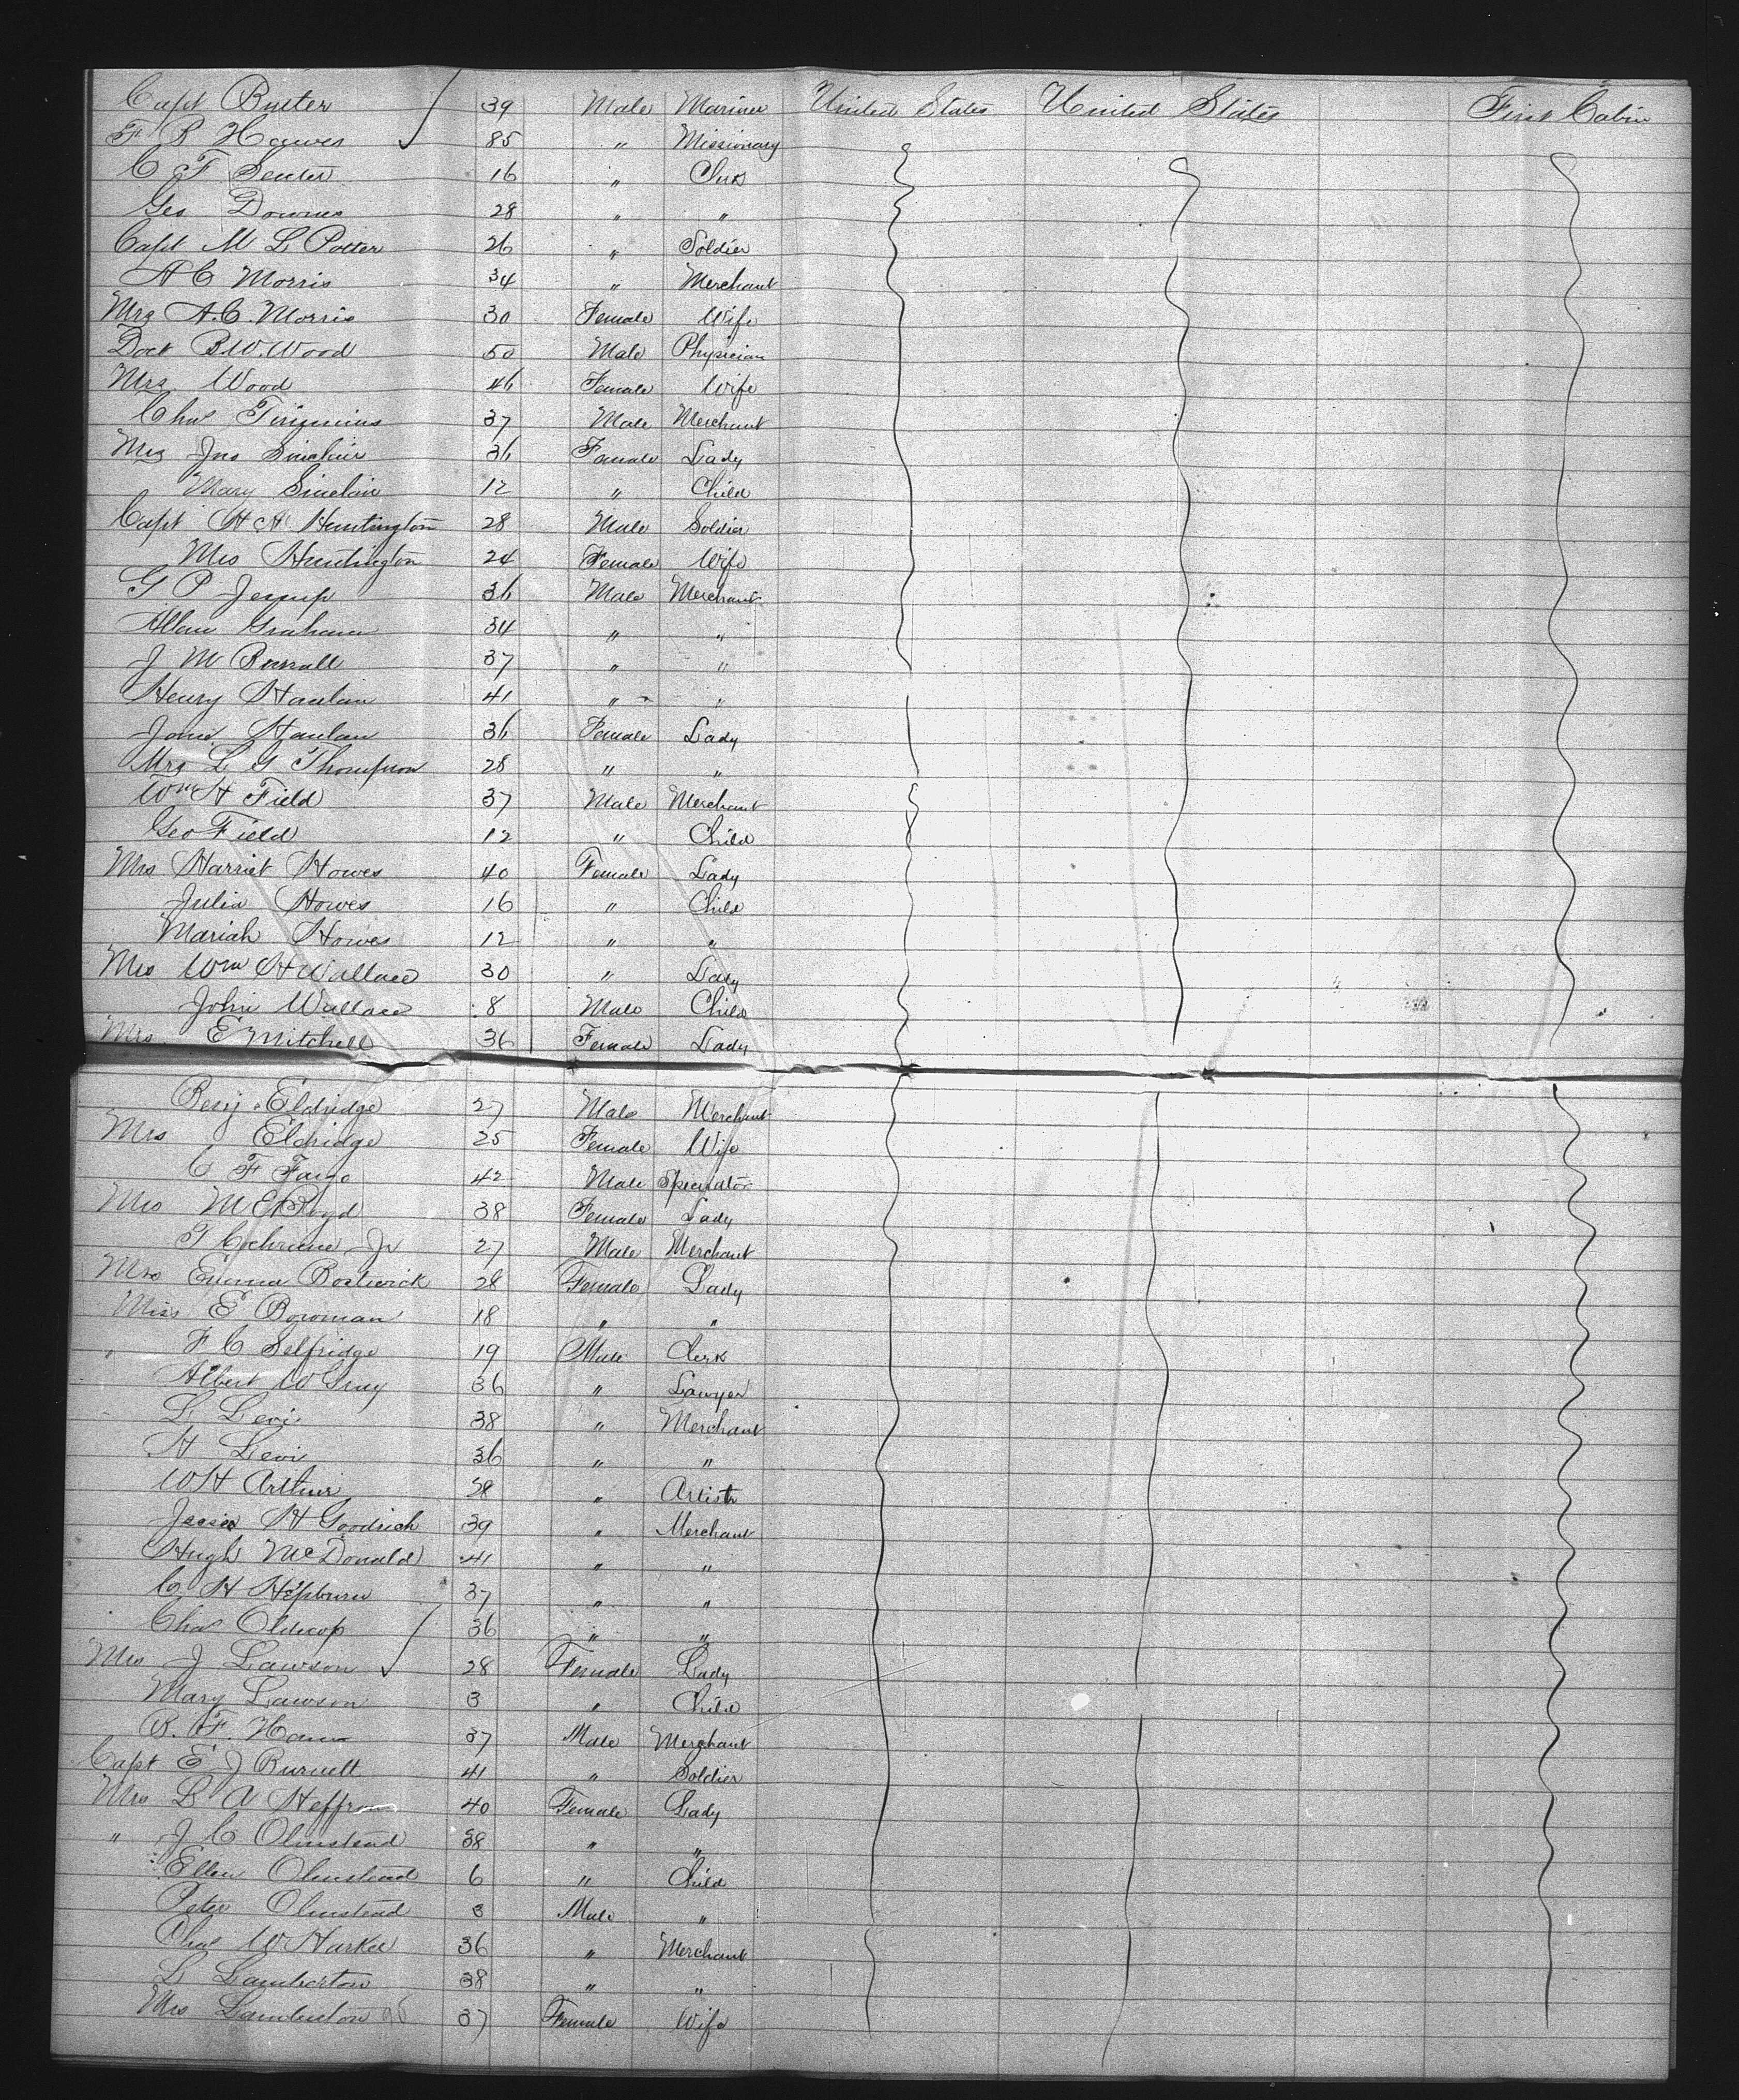 Capt Butter 39 Male Mariner United States United States First Cabin
F R Hawes 85 " Missionary
C F Senter 16 "
Geo Downes 28 " "
Capt M L Potter 26 " Soldier
A C Morris 34 " Merchant
Mrs A.C. Morris 30 Female Wife
Doct B.W. Wood 50 Male Physician
Mrs Wood 46 Female Wife
Chas 37 Male Merchant
Mrs Jno Sinclair 36 Female Lady
Mary Sinclair 12 " Child
Capt H H Huntington 28 Male Soldier
Mrs Huntington 24 Female Wife
G P Jessup 36 Male Merchant
Allan Graham 34 " "
J M Burrall 37 " "
Henry Hanlan 41 " "
Hanlan 36 Female Lady
Mrs L G Thompson 28 " "
Wm H Field 37 Male Merchant
Geo Field 12 " Child
Mrs Harriet Howes 40 Female Lady
Julia Howes 16 " Child
Mariah Howes 12 " "
Mrs Wm H Wallace 30 " Lady
John Wallace 8 Male Child
Mrs E Mitchell 36 Female Lady
Benj Eldridge 27 Male Merchant
Mrs Eldridge 25 Female Wife
C F Fargo 42 Male Speculator
Mrs M E Boyd 38 Female Lady
T Cochrane Jr 27 Male Merchant
Mrs Emma Bostwick 28 Female Lady
Miss E Bowman 18 " "
" F C Selfridge 19 Male Clerk
Albert W Gray 36 " Lawyer
L Levi 38 " Merchant
H Levi 36 " "
W H Arthur 28 " Artist
Jesse H Goodrich 39 " Merchant
Hugh McDonald 41 " "
C H Hepburn 37 " "
Chas 36 " "
Mrs J Lawson 28 Female Lady
Mary Lawson 3 " Child
R. F. 37 Male Merchant
Capt E J Burnett 41 " Soldier
Mrs L A Heffron 40 Female Lady
" J C Olmstead 38 " "
Ellen Olmstead 6 " Child
Peter Olmstead 3 Male "
Chas W Harker 36 " Merchant
L Lamberton 38 " "
Mrs Lamberton 37 Female Wife